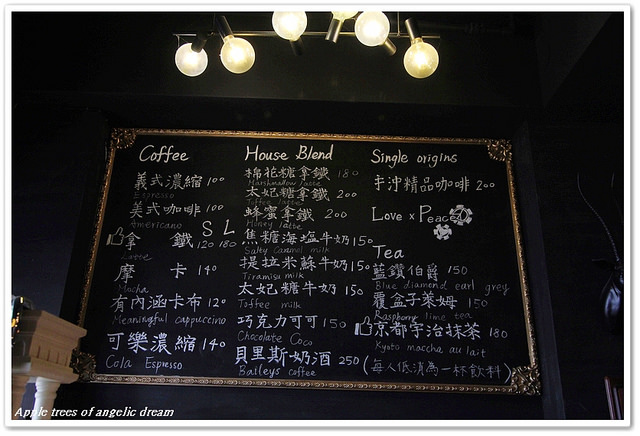 Coffee
義式濃縮 100
Espresso
美式咖啡 100
Americano
S L
拿鐵 120 180
Latte
摩卡 140
Mocha
有內涵卡布 120
Meaningful cappuccino
可樂濃縮 140
Cola Espresso
House Blend
棉花糖拿鐵 180
Marshmallow latte
太妃糖拿鐵 200
Toffee latte
蜂蜜拿鐵 200
Honey latte
焦糖海塩牛奶 150
Salty Caramel milk
提拉米蘇牛奶 150
Tiramisu milk
太妃糖牛奶 150
Toffee milk
巧克力可可 150
Chocolate Coco
貝里斯奶酒 250
Baileys coffee
Single origins
手沖精品咖啡 200
Love x Peace
Tea
藍鑽伯爵 150
Blue diamond earl grey
覆盆子萊姆 150
Raspberry lime tea
京都宇治抹茶 180
Kyoto maccha au lait
(每人低消為一杯飲料)
Apple trees of angelic dream